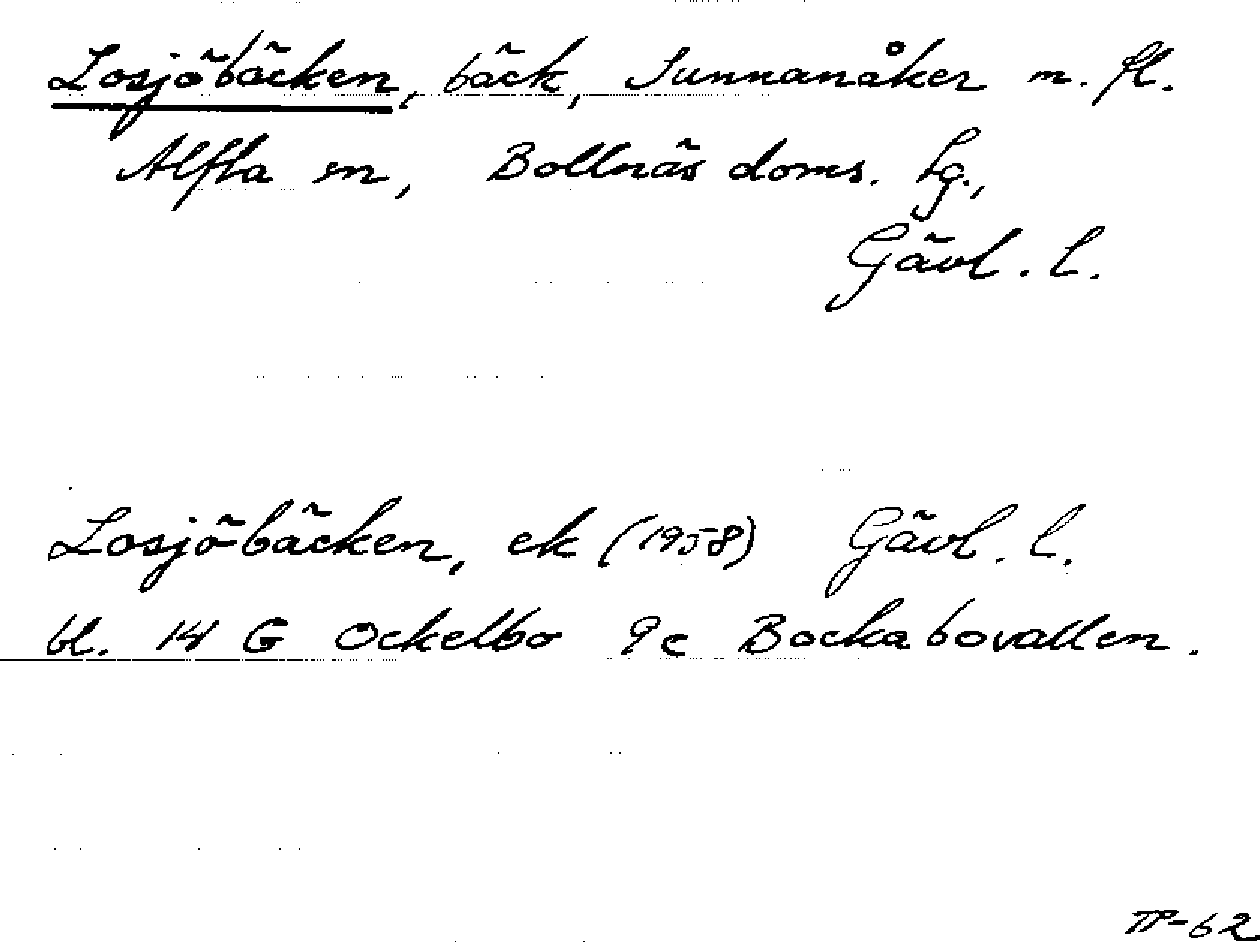 Losjöbäcken, bäck, Sunnanåker m. fl.
Alfta sn, Bollnäs doms. hg.,
Gävl. l.
Losjöbäcken, ek (1958) Gävl. l.
bl. 14 G Ockelbo 9c Bockabovallen.
TP-62